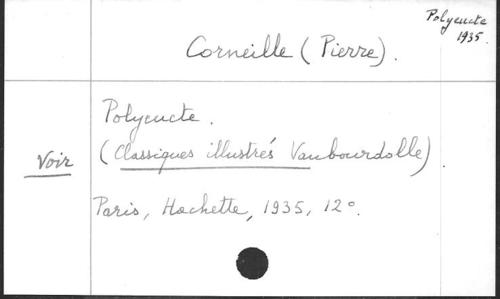 Polyeucte
1935.
Corneille (Pierre).
Polyeucte.
Voir
(Classiques illustrés Vaubourdolle).
Paris, Hachette, 1935, 12°.